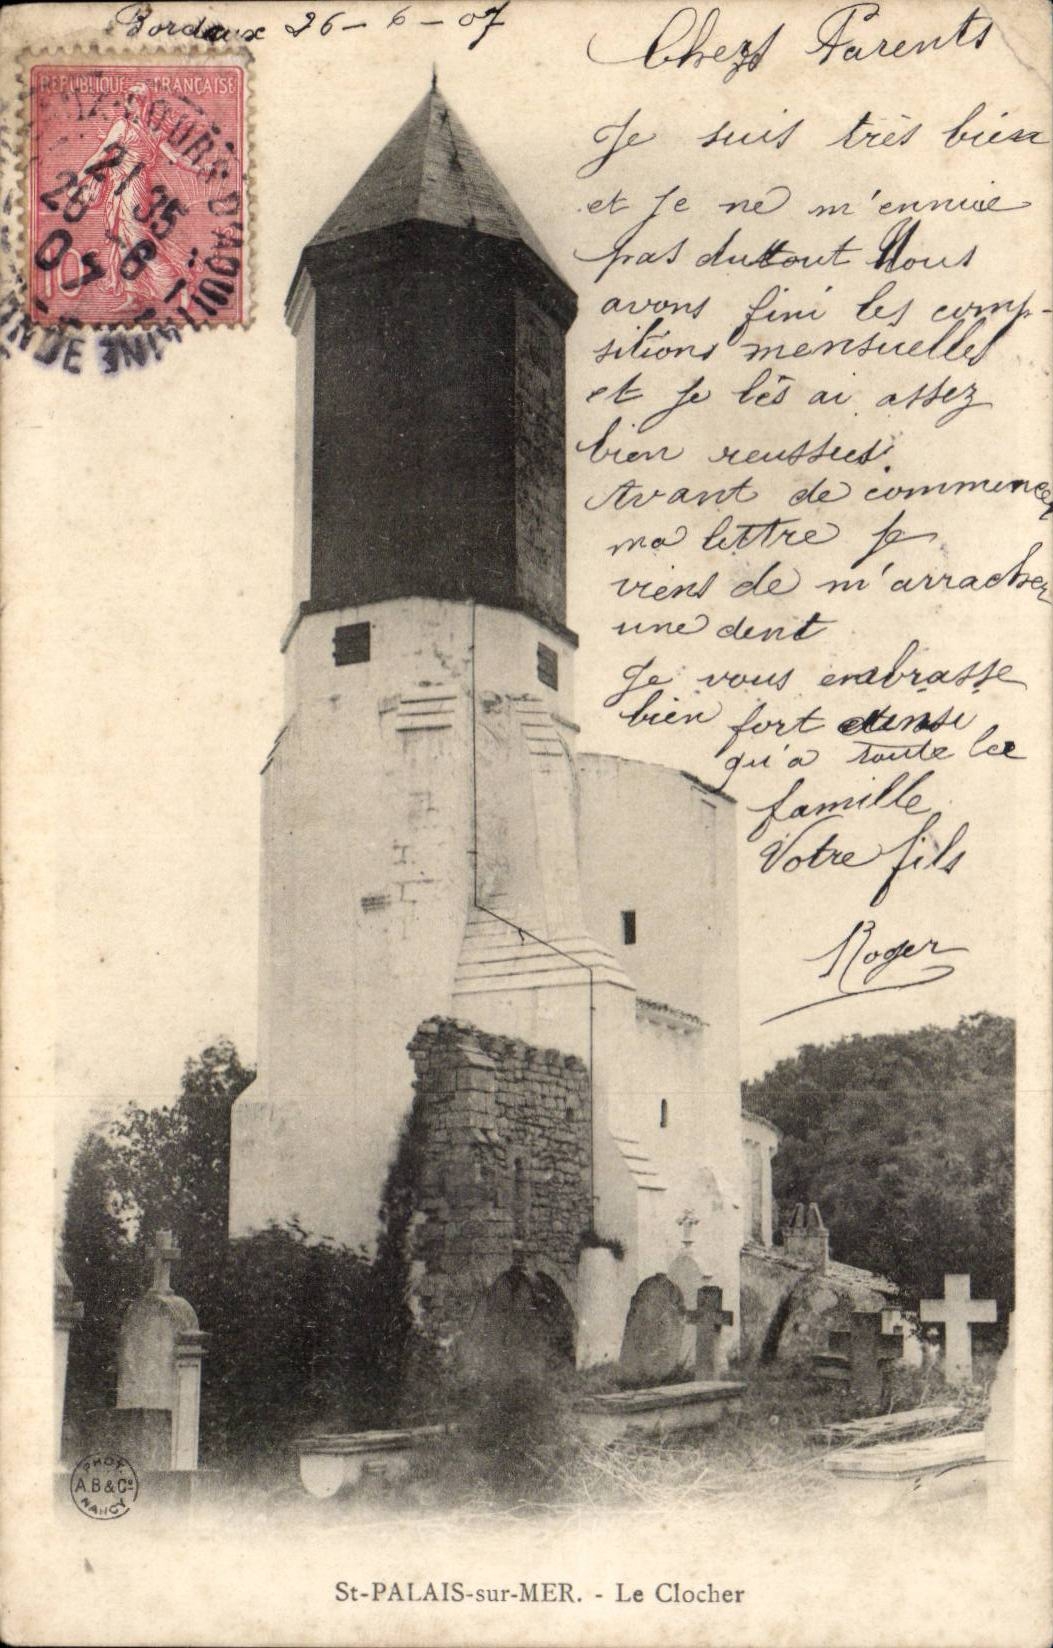 Bordeaux 26-6-07
Chers Parents
RÉPUBLIQUE FRANÇAISE
COURS D'AQUITAINE
21 35
26 -6
07
10
GIRONDE
Je suis très bien
et Je ne m'ennuie
pas dutout Nous
avons fini les comp-
sitions mensuelles
et Je lès ai assez
bien reussies.
Avant de commencer
ma lettre Je
viens de m'arracher
une dent
Je vous embrasse
bien fort ainsi
qu'a toute la
famille
Votre fils
Roger
PHOT.
A.B & Cie
NANCY
St-PALAIS-sur-MER. - Le Clocher